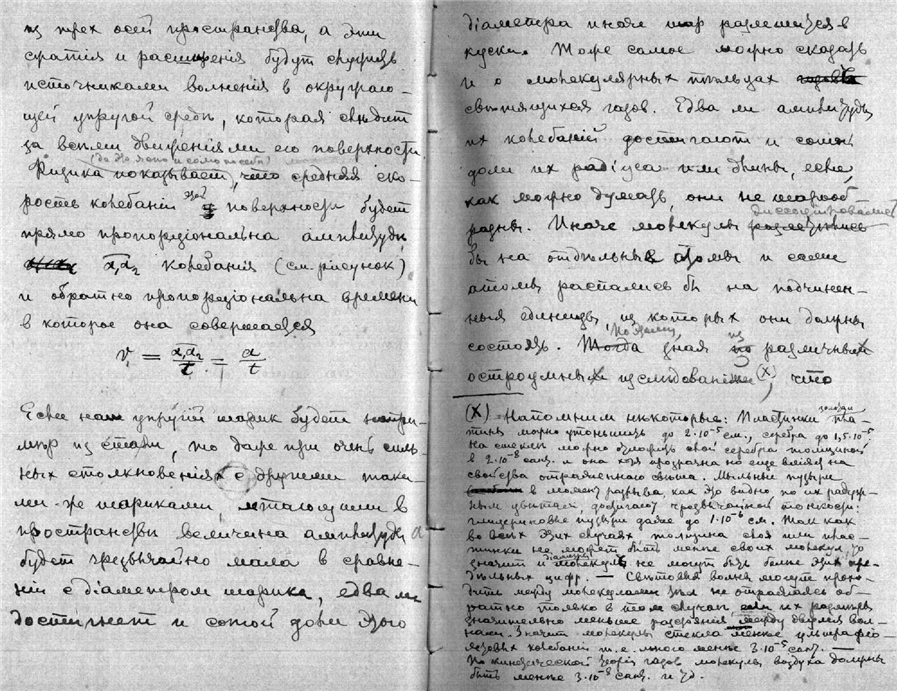 из трех осей пространства, а эти
сжатія и расширенія будут служить
источниками волненія в окружаю-
щей упругой средѣ, которая слѣдит
за всѣми движеніями его поверхности.
(да это ясно и само по себѣ)
Физика показывает, что средняя ско-
рость колебаній этой поверхности будет
прямо пропорціональна амплитудѣ
x₁x₂ колебанія (см. рисунок)
и обратно пропорціональна времени
в которое она совершается
v₁ = x₁x₂/t = a/t
Если упругій шарик будет напри-
мѣр из стали, то даже при очень силь-
ных столкновеніях с другими таки-
ми-же шариками, летающими в
пространствѣ величина амплитуды a
будет чрезвычайно мала в сравне-
ніи с діаметром шарика, едва ли
достигнет и сотой доли этого
діаметра иначе шар разлетится в
куски. Тоже самое можно сказать
и о молекулярных тѣльцах
свѣтящихся газов. Едва ли амплитуды
их колебаній достигают и сотой
доли их радіуса или длины, если,
как можно думать, они не шарооб-
разны. Иначе молекулы диссоціировались
бы на отдѣльные атомы и сами
атомы распались бы на подчинен-
ныя единицы, из которых они должны
состоять. Поэтому зная из различных
остроумных изслѣдованій (x), что
(x) Напомним нѣкоторые: Пластинки золота
тины можно утоньшить до 2·10⁻⁵ см., серебра до 1,5·10⁻⁵
На стеклѣ можно осадить слой серебра толщиной
в 2·10⁻⁸ сант. и она хотя прозрачна но еще вліяет на
свойства отраженного свѣта. Мыльный пузырь
в момент разрыва, как это видно по их радуж-
ным цвѣтам, достигают чрезвычайной тонкости:
глицериновые пузыри даже до 1·10⁻⁶ см. Так как
во всѣх этих случаях толщина слоя или плас-
тинки не может быть менѣе своих молекул, то
значит и діаметры молекул не могут быть болѣе этих пре-
дѣльных цифр. — Свѣтовыя волны могут прохо-
дить между молекулами тѣл не отражаясь об-
ратно только в том случаѣ, если их размѣры
значительно меньше разстоянія между двумя вол-
нами. Значит молекулы стекла менѣе ультрафіо-
летовых колебаній т.е. много менѣе 3·10⁻⁵ сант. —
По кинетической теоріи газов молекулы воздуха должны
быть менѣе 3·10⁻⁸ сант. и т.д.